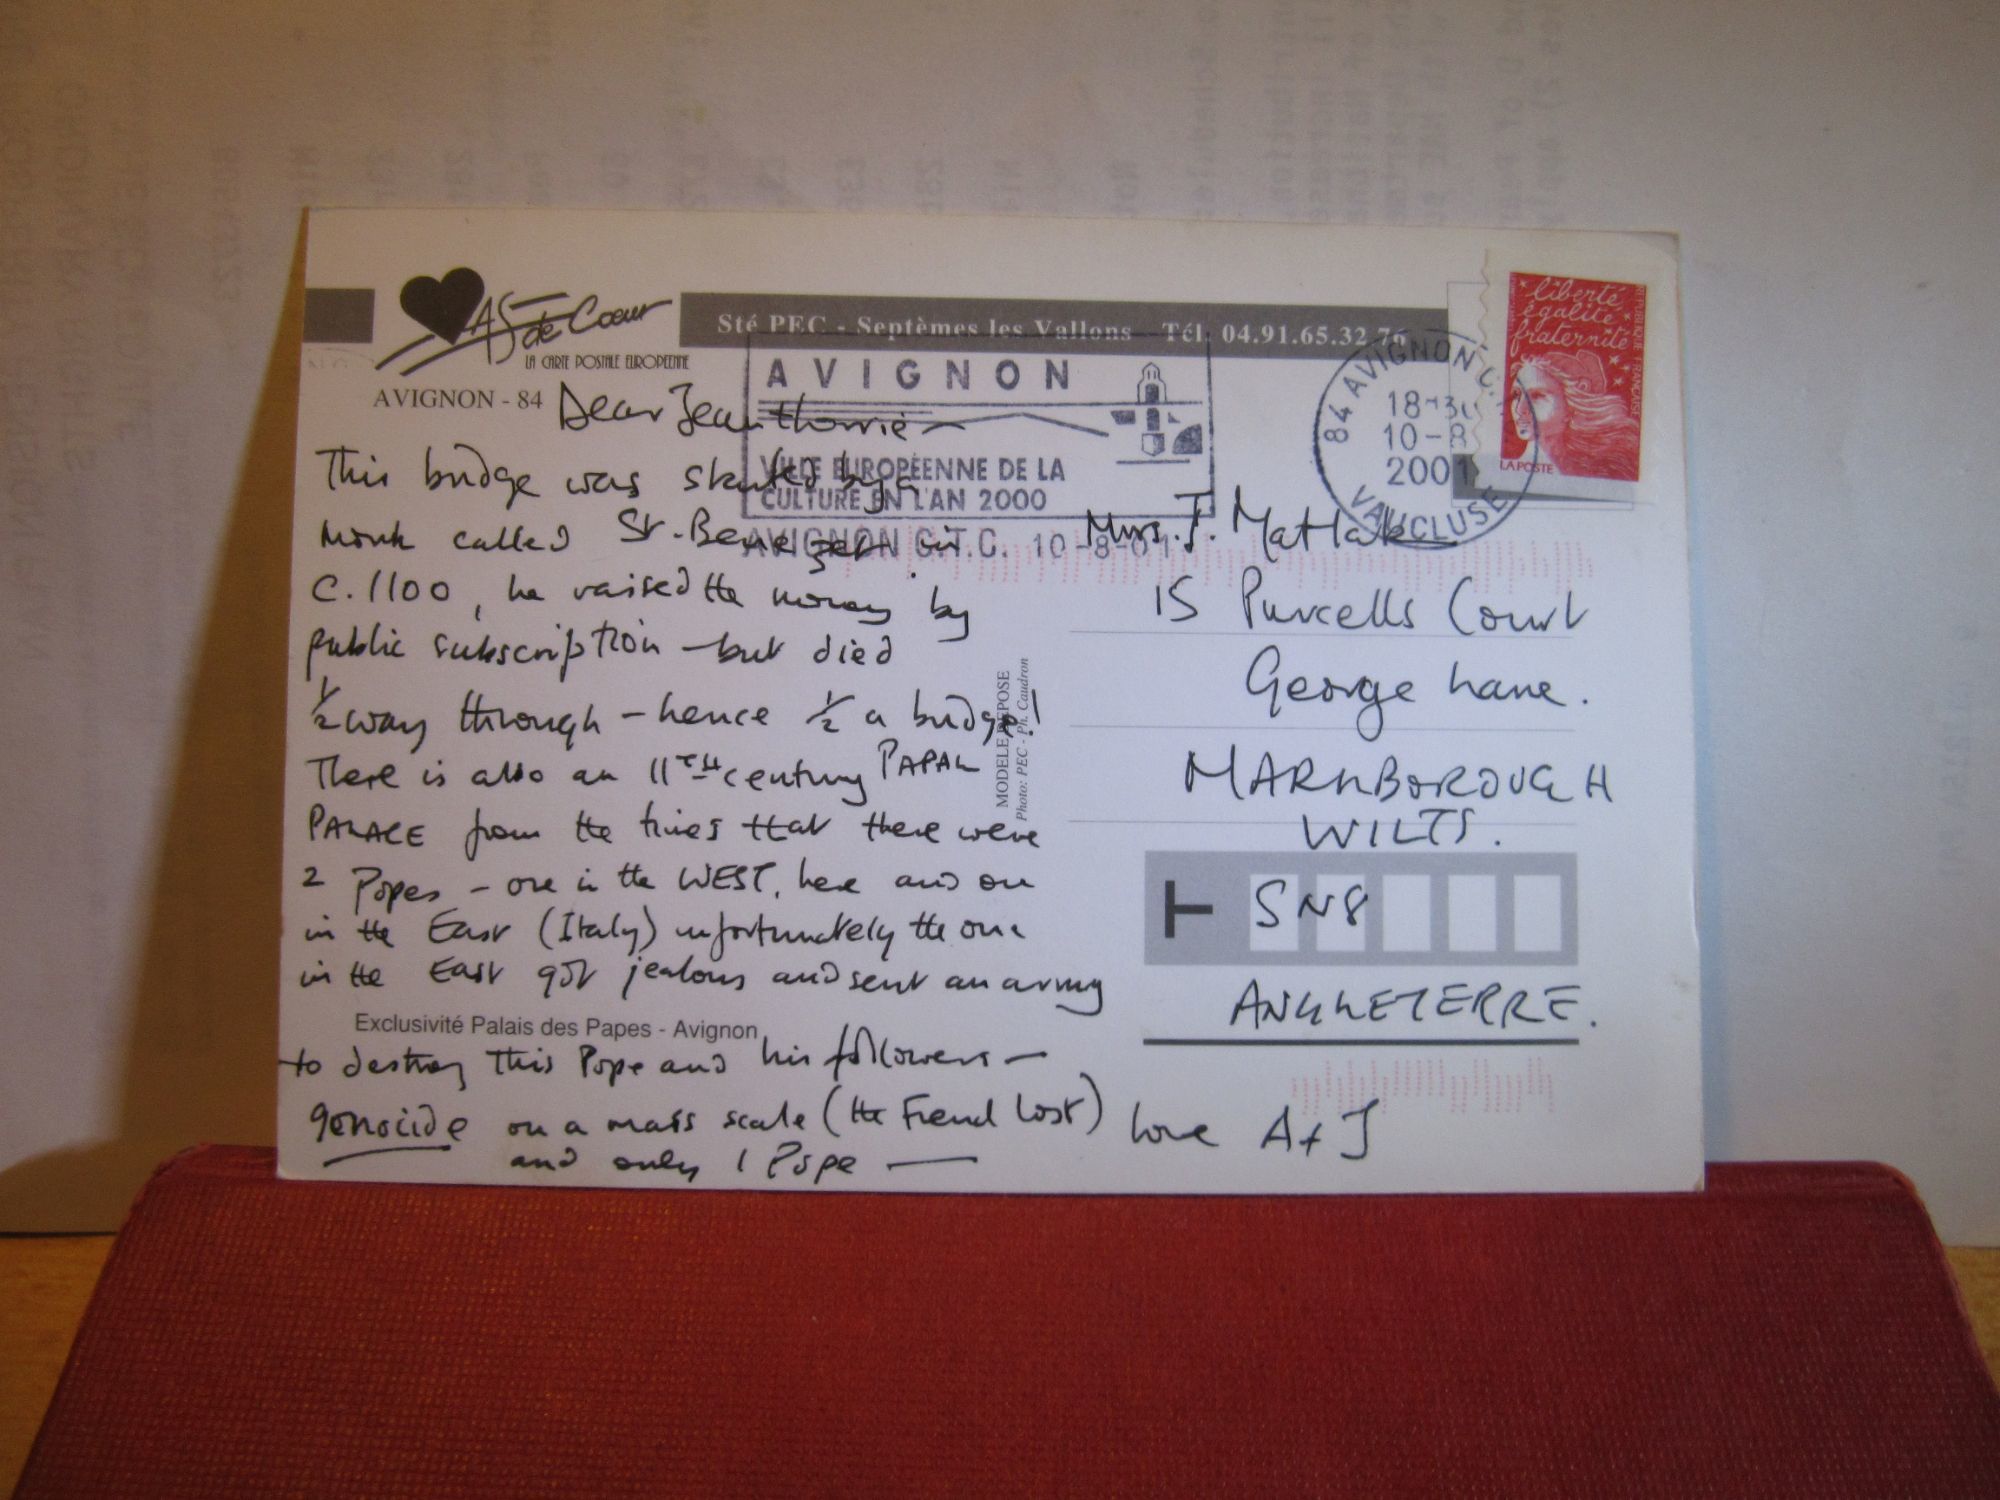 AS de Cœur
LA CARTE POSTALE EUROPEENNE
Sté PEC - Septèmes les Vallons Tél. 04.91.65.32.76
AVIGNON - 84
AVIGNON
VILLE EUROPÉENNE DE LA
CULTURE EN L'AN 2000
AVIGNON C.T.C. 10-8-01
84 AVIGNON C.T.
18-30
10-8
2001
VAUCLUSE
liberté
égalité
fraternité
REPUBLIQUE FRANÇAISE
LA POSTE
Dear Jean
This bridge was started by a
monk called St. Benezet in
C.1100, he raised the money by
public subscription - but died
1/2 way through - hence 1/2 a bridge!
There is also an 11TH century PAPAL
PALACE from the times that there were
2 Popes - one in the WEST, here and one
in the East (Italy) unfortunately the one
in the East got jealous and sent an army
Exclusivité Palais des Papes - Avignon
to destroy this Pope and his followers -
genocide on a mass scale (the Friend Lost)
and only 1 Pope -
love A + J
MODELE DEPOSE
Photo: PEC - Ph. Caudron
Mrs. J. Matlak
15 Purcells Court
George Lane.
MARLBOROUGH
WILTS.
SN8
ANGLETERRE.